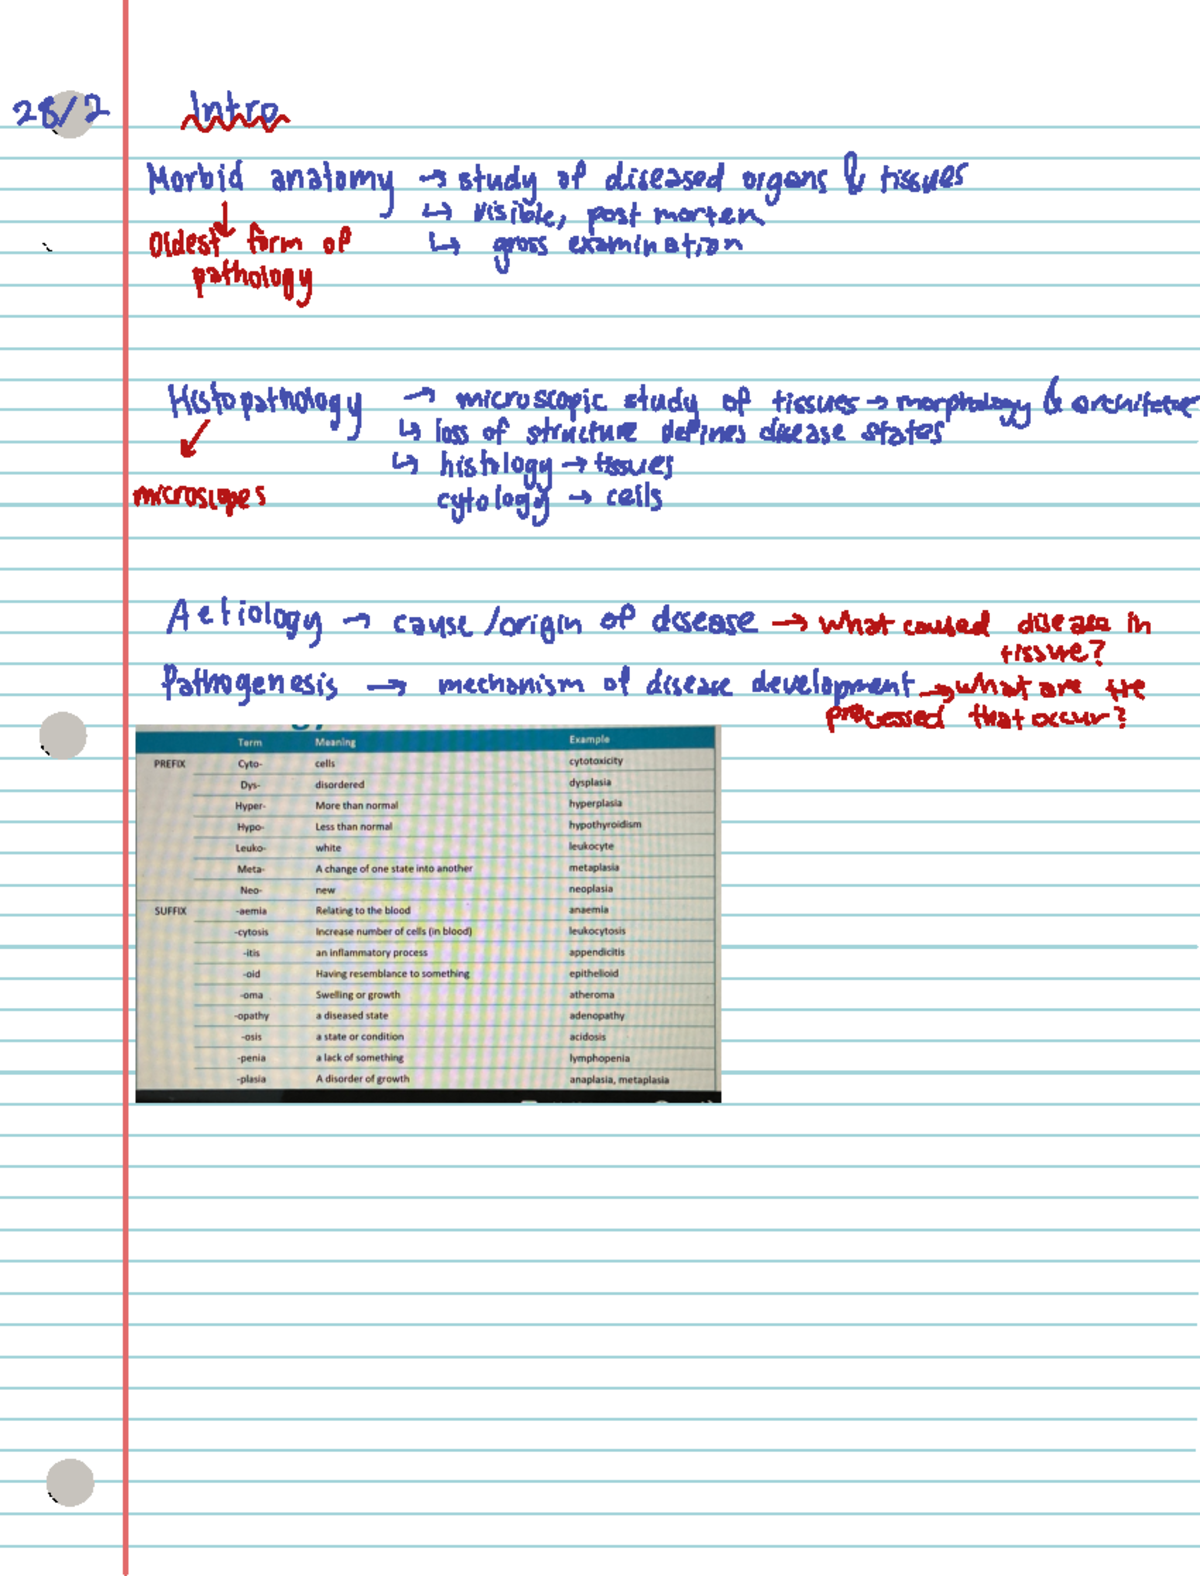 28/2 Intro
Morbid anatomy → study of diseased organs & tissues
↳ visible, post morten
Oldest form of ↳ gross examination
pathology
Histopathology → microscopic study of tissues → morphology &
↳ loss of structure defines disease states
↳ histology → tissues
microscopes cytology → cells
Aetiology → cause/origin of disease → what caused disease in
tissue?
Pathogenesis → mechanism of disease development → what are the
processed that occur?
Term Meaning Example
PREFIX Cyto- cells cytotoxicity
Dys- disordered dysplasia
Hyper- More than normal hyperplasia
Hypo- Less than normal hypothyroidism
Leuko- white leukocyte
Meta- A change of one state into another metaplasia
Neo- new neoplasia
SUFFIX -aemia Relating to the blood anaemia
-cytosis Increase number of cells (in blood) leukocytosis
-itis an inflammatory process appendicitis
-oid Having resemblance to something epithelioid
-oma Swelling or growth atheroma
-opathy a diseased state adenopathy
-osis a state or condition acidosis
-penia a lack of something lymphopenia
-plasia A disorder of growth anaplasia, metaplasia